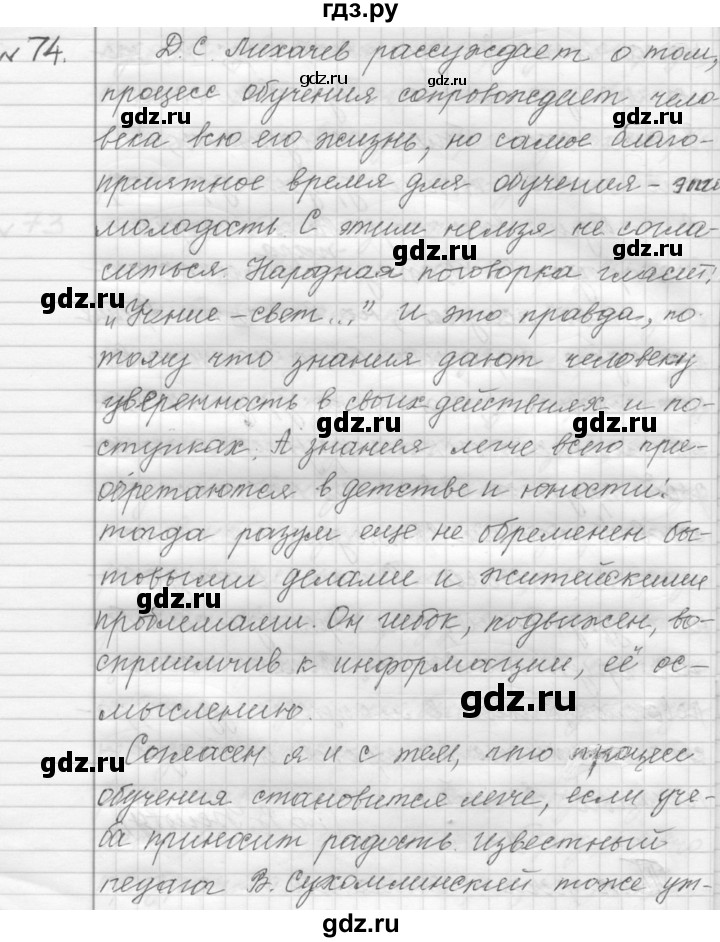 гдз.ру
№ 74. Д. С. Лихачев рассуждает о том,
gdz.ru gdz.ru
процесс обучения сопровождает чело
века всю его жизнь, но самое благо-
приятное время для обучения - это
молодость. С этим нельзя не согла-
gdz.ru gdz.ru
ситься. Народная поговорка гласит:
gdz.ru
„Учение - свет..." И это правда, по
тому что знания дают человеку
уверенность в своих действиях и по-
gdz.ru gdz.ru
ступках. А знания легче всего при-
обретаются в детстве и юности:
тогда разум еще не обременен бы-
товыми делами и житейскими
gdz.ru
проблемами. Он гибок, подвижен, во-
сприимчив к информации, её ос-
gdz.ru
мыслению.
Согласен я и с тем, что процесс
gdz.ru
обучения становится легче, если уче-
ба приносит радость. Известный
педагог В. Сухомлинский тоже ут-
gdz.ru gdz.ru
гдз.ру